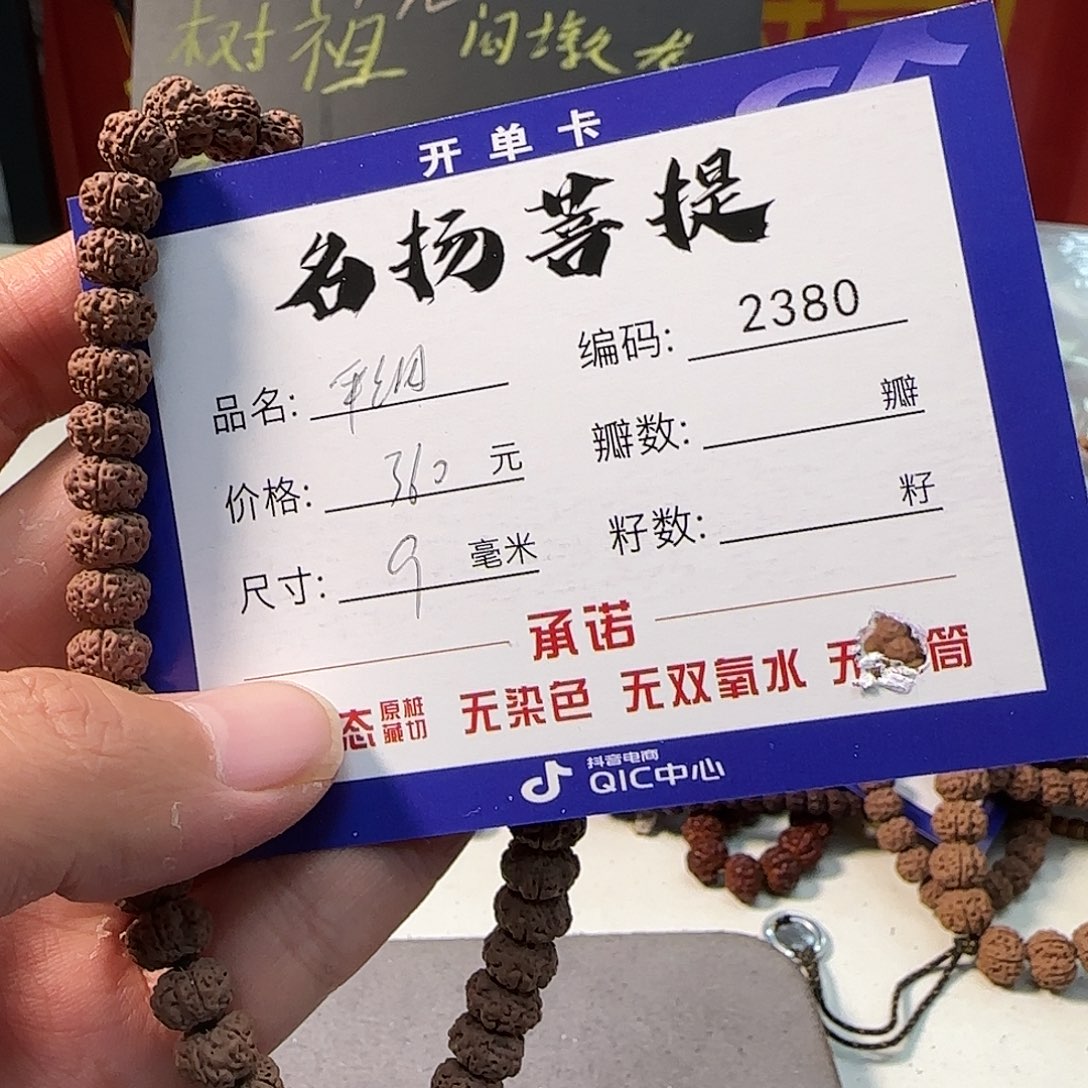 树祖 闷墩老
开单卡
名扬菩提
品名: 编码: 2380
价格: 360 元 瓣数: 瓣
尺寸: 9 毫米 籽数: 籽
承诺
态 原桩藏切 无染色 无双氧水 无 筒
抖音电商
QIC中心